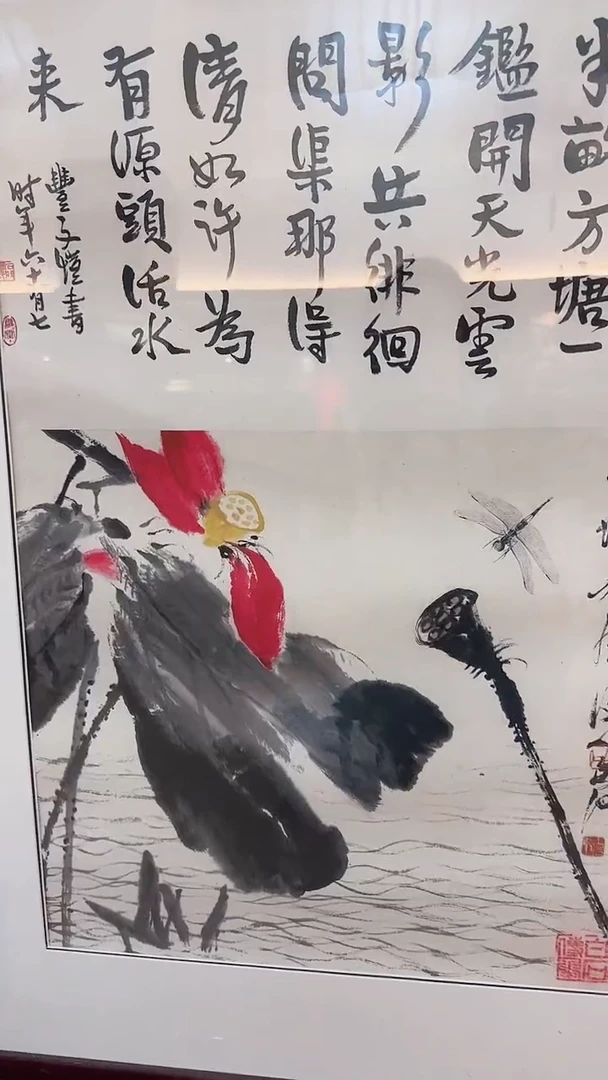 半畝方塘一
鑑開天光雲
影共徘徊
問渠那得
清如许為
有源頭活水
来
豐子愷書
时年六十有七